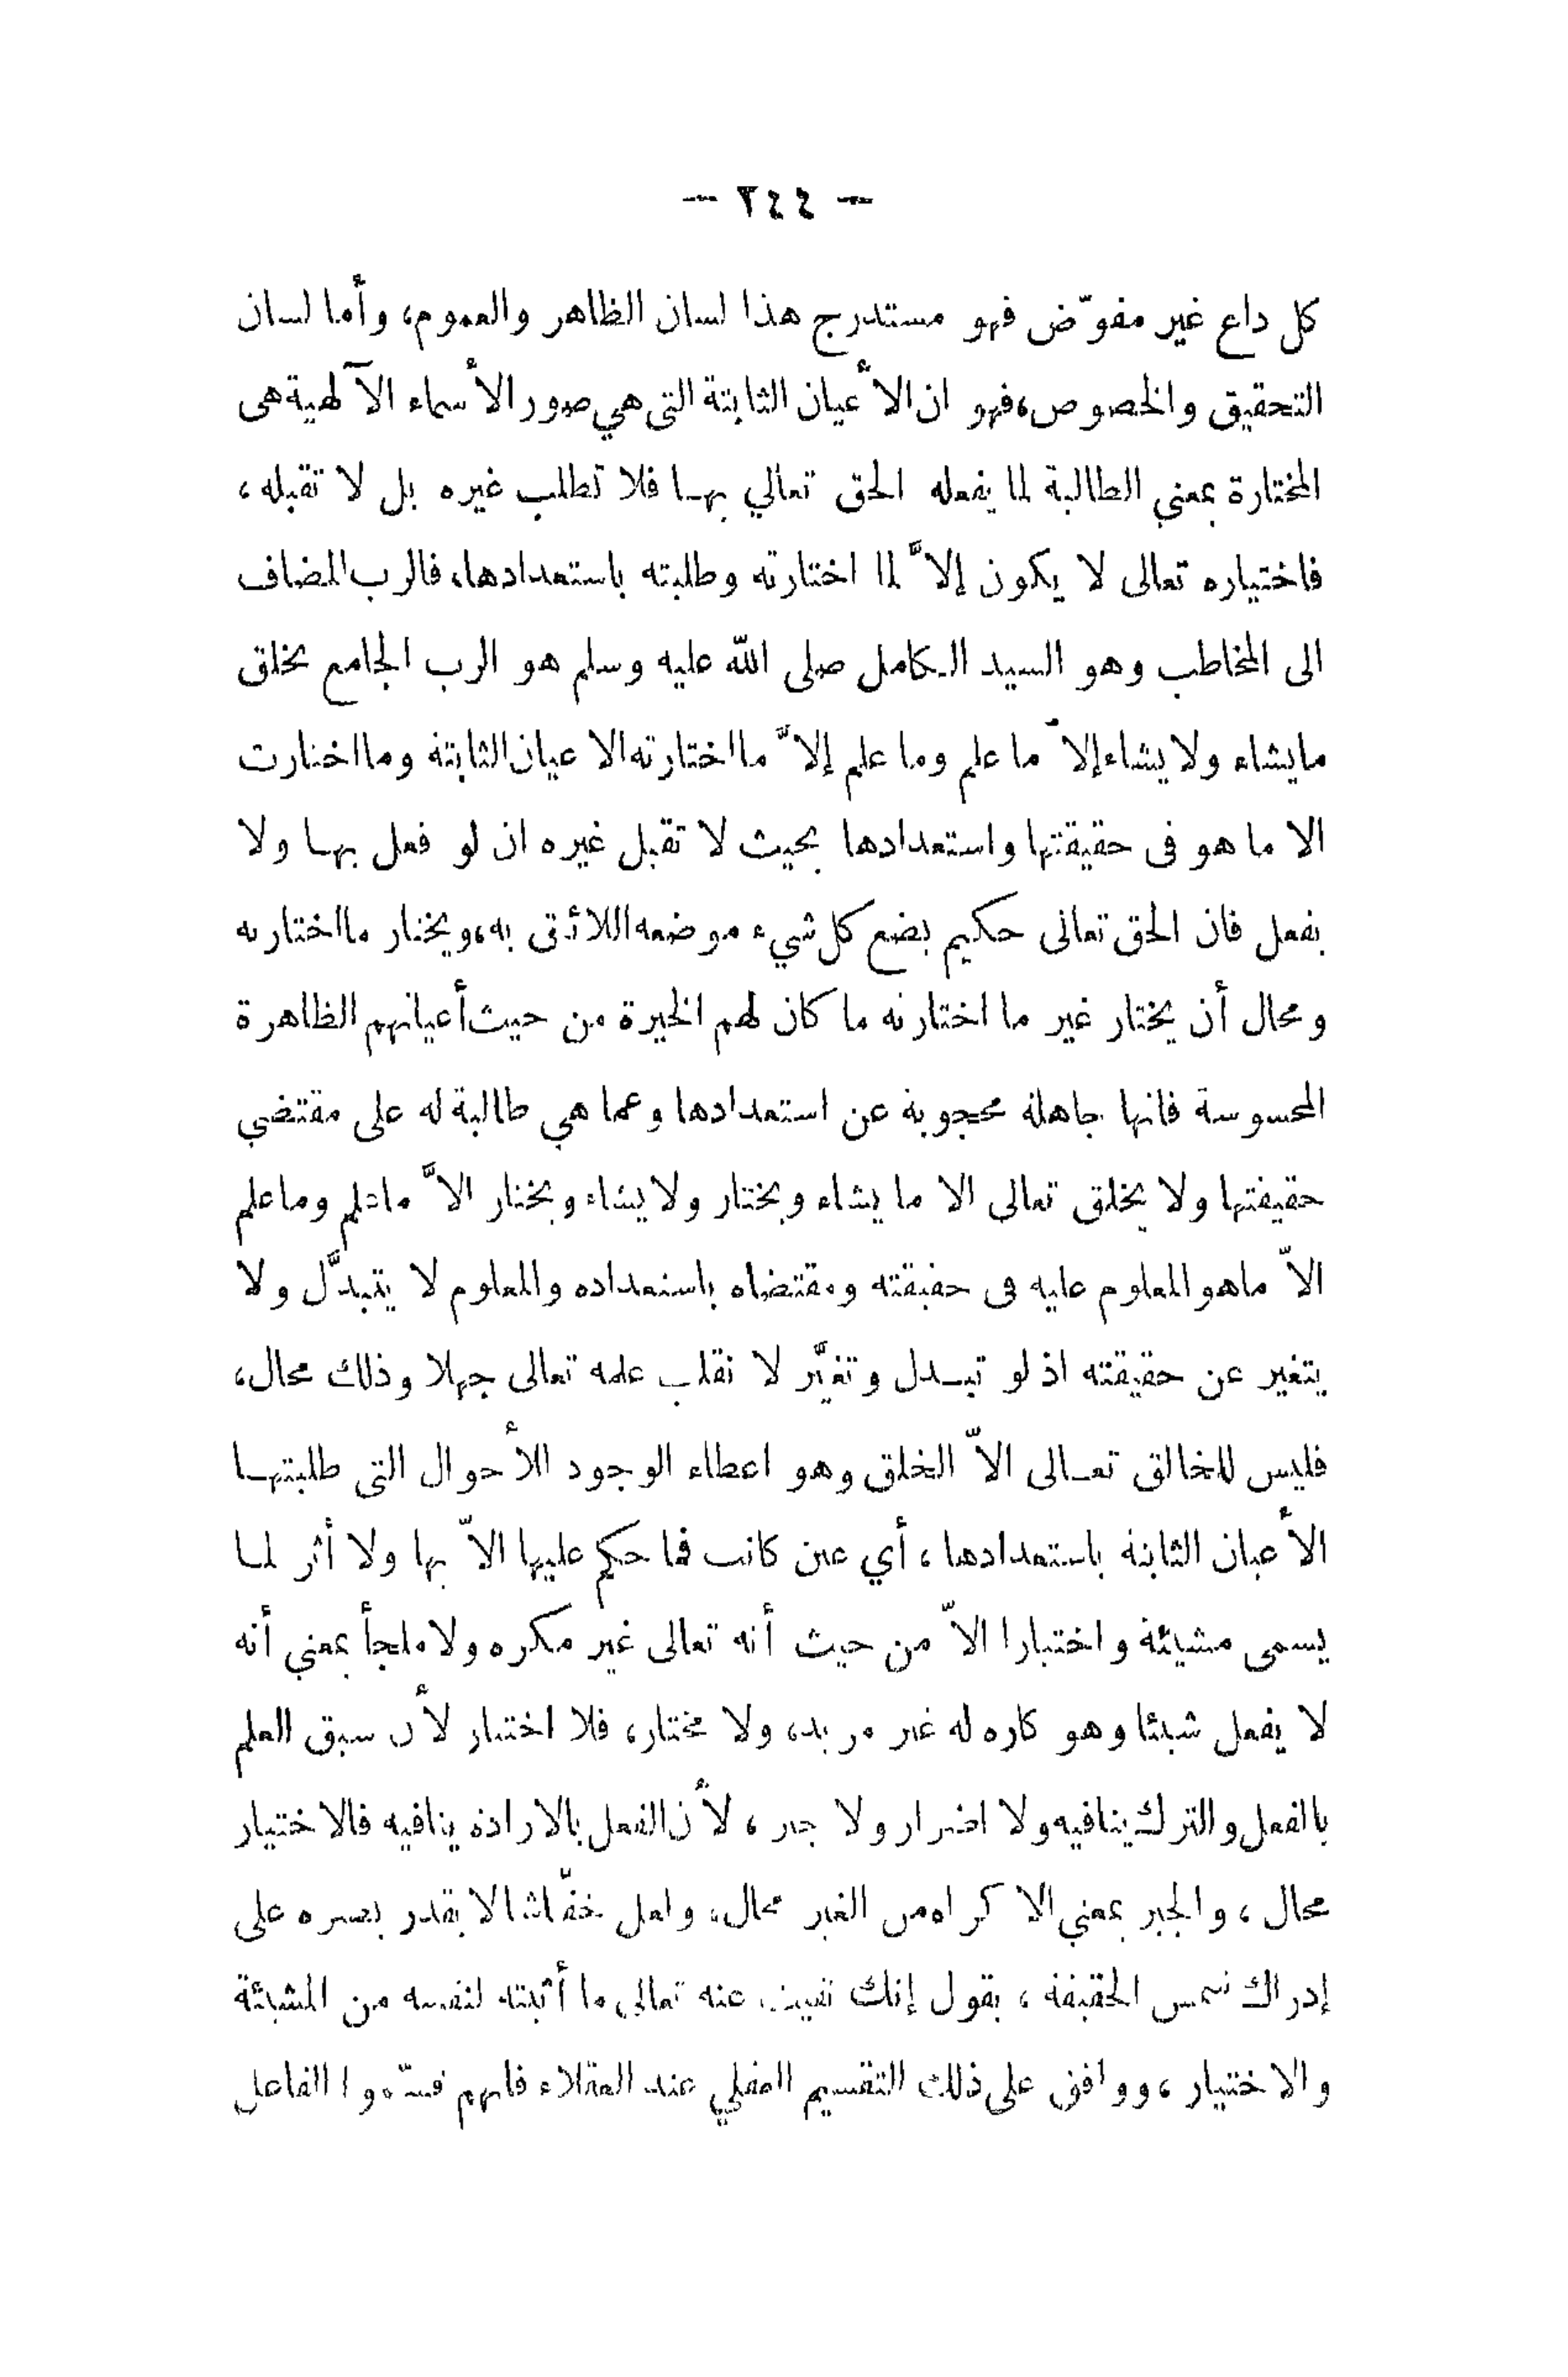 — ٢٤٤ —
كل داع غير مفوّض فهو مستدرج هذا لسان الظاهر والعموم، وأما لسان
التحقيق والخصوص، فهو ان الأعيان الثابتة التى هي صور الأسماء الآلهية هى
المختارة بمعني الطالبة لما يفعله الحق تعالي بهـا فلا تطلب غيره بل لا تقبله ،
فاختياره تعالى لا يكون إلاَّ لما اختارته وطلبته باستعدادها، فالرب المضاف
الى المخاطب وهو السيد الـكامل صلى الله عليه وسلم هو الرب الجامع يخلق
مايشاء ولا يشاء إلاّ ما علم وما علم إلاَّ ما اختارته الاعيان الثابتة وما اختارت
الا ما هو فى حقيقتها واستعدادها بحيث لا تقبل غيره ان لو فعل بهـا ولا
يفعل فان الحق تعالى حكيم يضع كل شيء موضعه اللائق به، ويختار ما اختارته
ومحال أن يختار غير ما اختارته ما كان لهم الخيرة من حيث أعيانهم الظاهرة
المحسوسة فانها جاهلة محجوبة عن استعدادها وعما هي طالبة له على مقتضي
حقيقتها ولا يخلق تعالى الا ما يشاء ويختار ولا يشاء ويختار الاَّ ماعلم وماعلم
الاّ ماهو المعلوم عليه فى حقيقته ومقتضاه باستعداده والمعلوم لا يتبدَّل ولا
يتغير عن حقيقته اذ لو تبـدل وتغيَّر لا نقلب علمه تعالى جهلا وذلك محال،
فليس للخالق تعـالى الاّ الخلق وهو اعطاء الوجود للأحوال التى طلبتهـا
الأعيان الثابتة باستعدادها ، أي عين كانت فما حكم عليها الاّ بها ولا أثر لمـا
يسمى مشيئة واختيارا الاّ من حيث أنه تعالى غير مكره ولا ملجأ بمعني أنه
لا يفعل شيئا وهو كاره له غير مريد، ولا مختار، فلا اختيار لأن سبق العلم
بالفعل والترك ينافيه ولا اضرار ولا جبر ، لأن الفعل بالارادة ينافيه فالاختيار
محال ، والجبر بمعني الاكراه من الغير محال، ولعل خفّاشا لا يقدر بصره على
إدراك شمس الحقيقة ، يقول إنك نفيت عنه تعالى ما أثبته لنفسه من المشيئة
والاختيار ، ووافق على ذلك التقسيم العقلي عند العقلاء فانهم قسّموا الفاعل